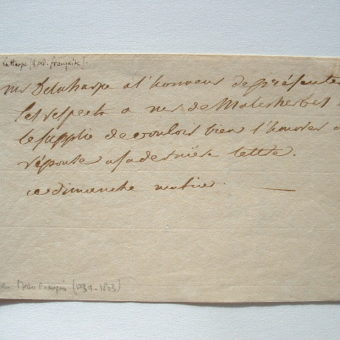 La Harpe (Acad. française).
mr Delaharpe a l'honneur de présenter
ses respects a mr de Malesherbes
le supplie de vouloir bien l'honorer
réponse a sa derniere lettre
ce dimanche matin.
Jean François (1739-1803)